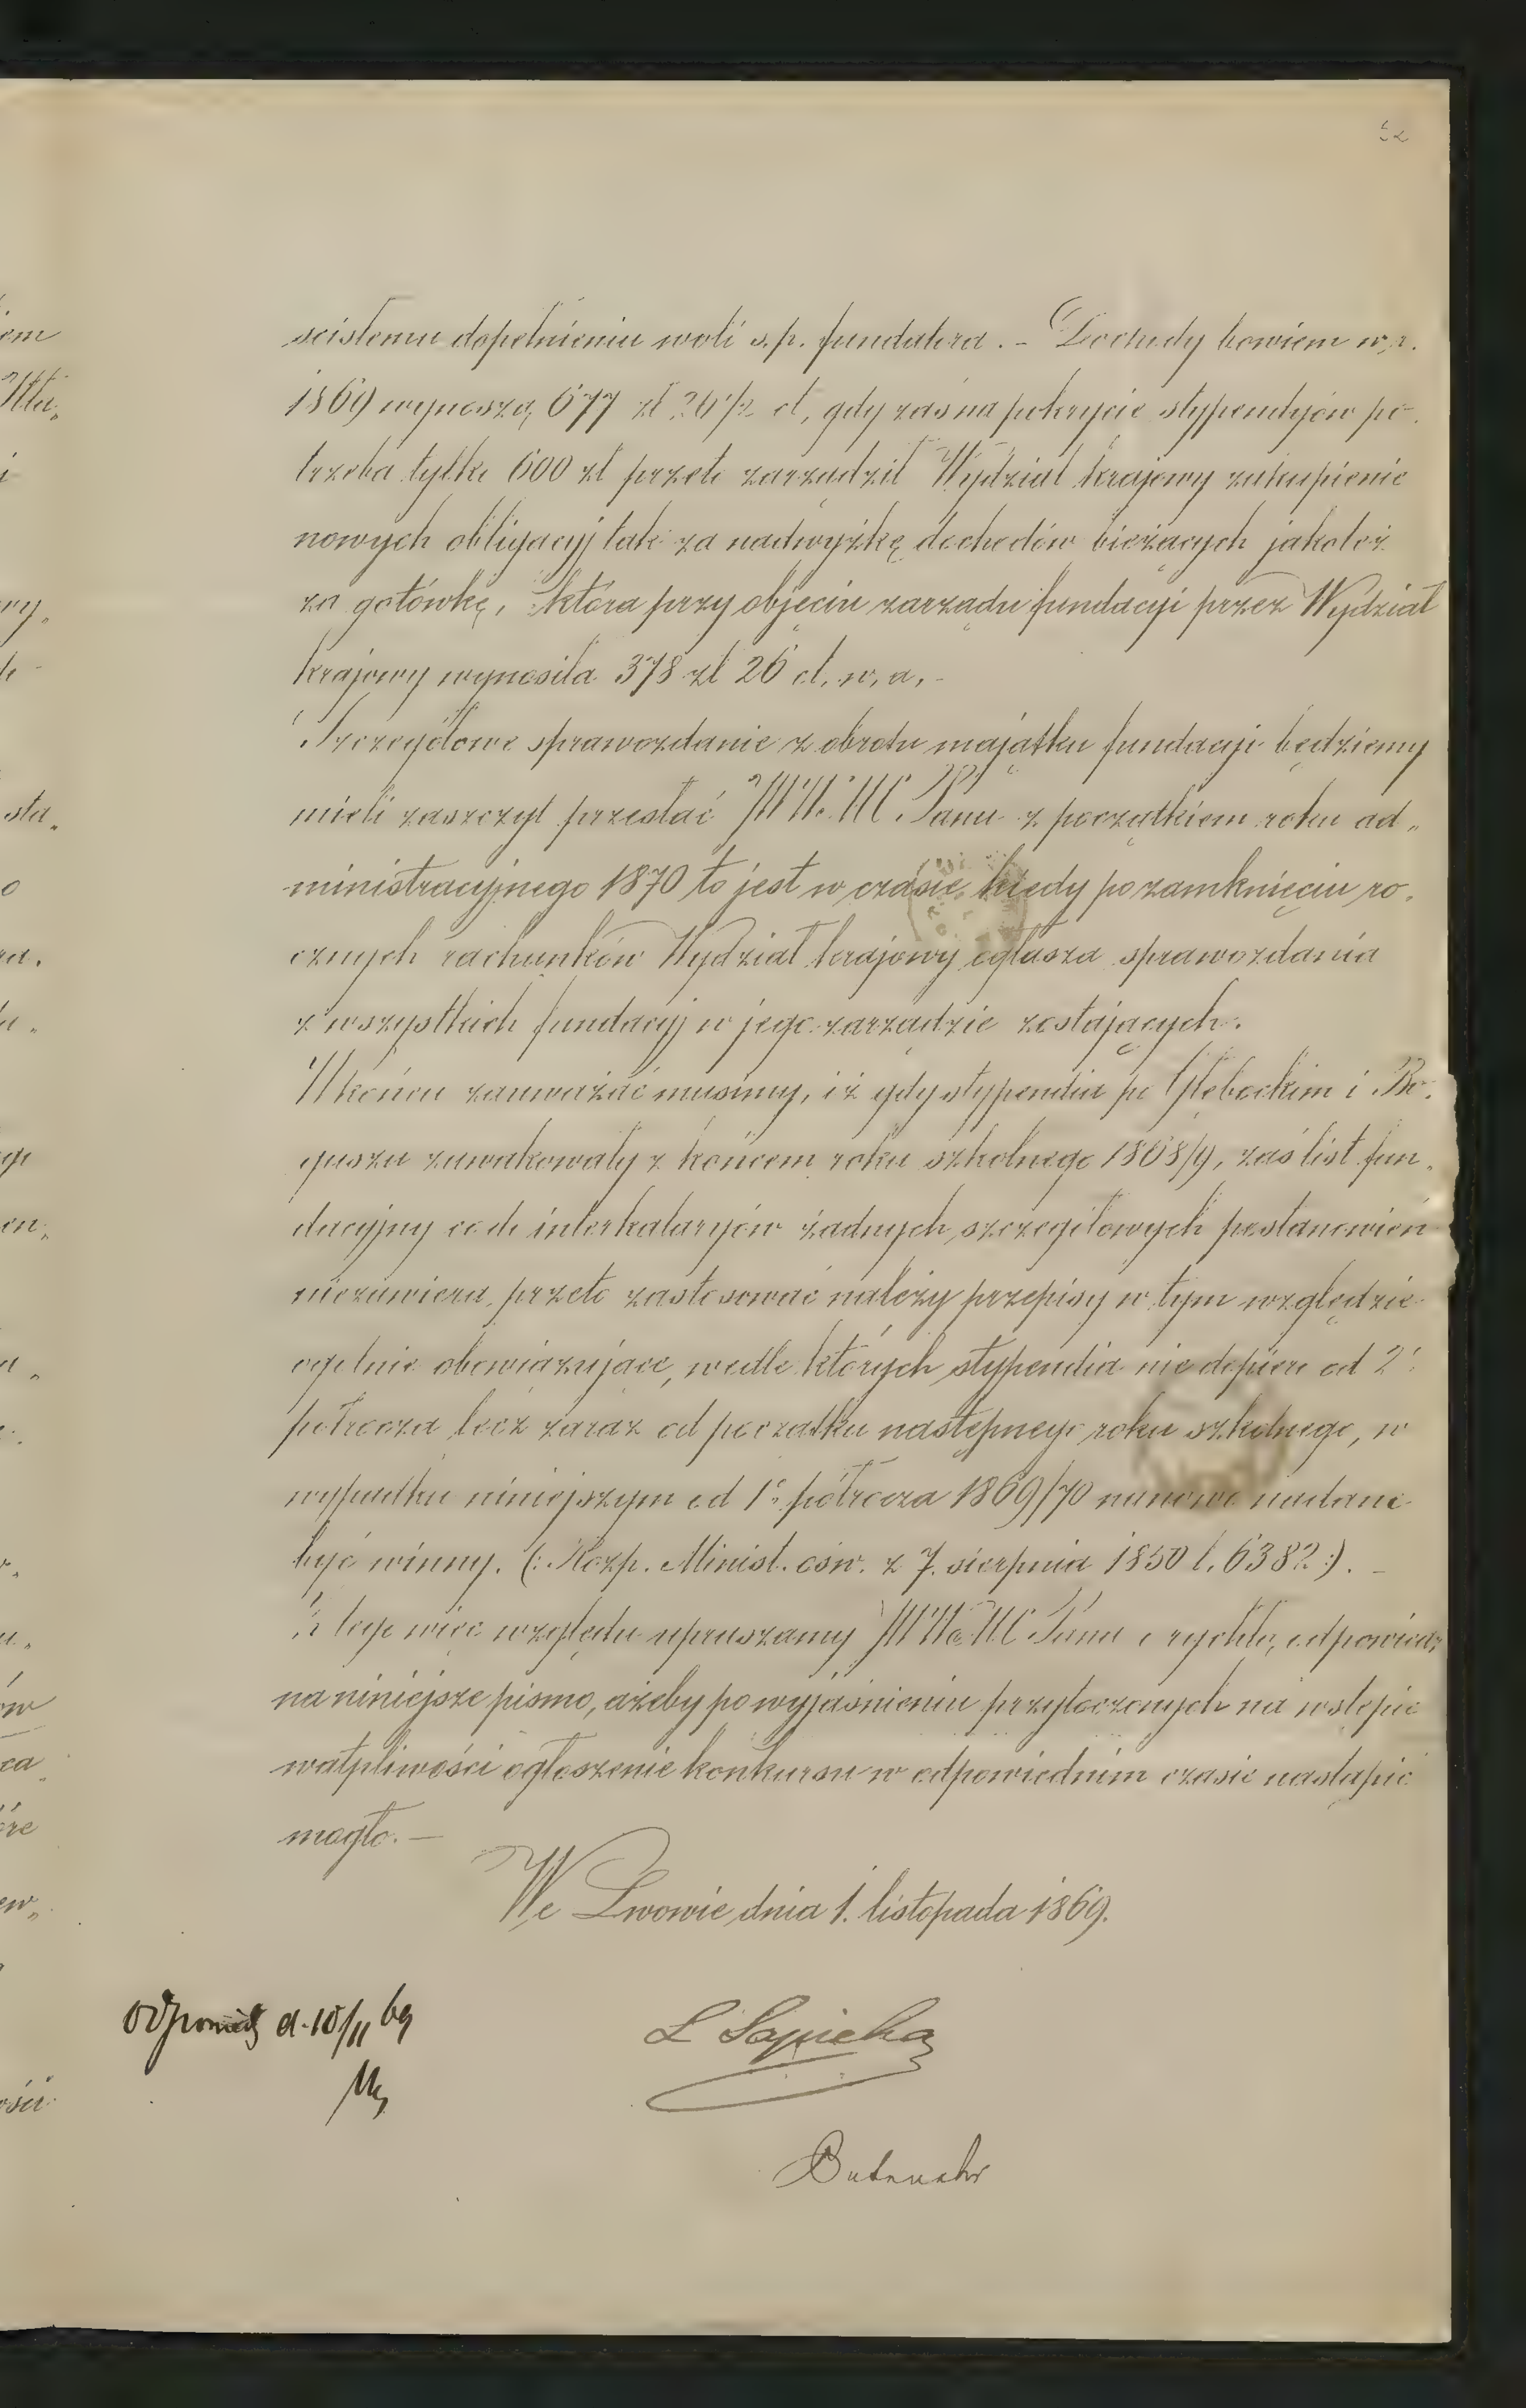 52
scisłemu dopełnieniu woli s.p. fundatora. - Dochody bowiem w r.
1869 wynoszą 677 zł 26½ ct, gdy zaś na pokrycie stypendyów po-
trzeba tylko 600 zł przeto zarządził Wydział krajowy zakupienie
nowych obligacyj tak za nadwyżkę dochodów bieżących jakoteż
za gotówkę, która przy objęciu zarządu fundacyi przez Wydział
krajowy wynosiła 378 zł 26 ct. w. a. -
Szczegółowe sprawozdanie z obrotu majątku fundacyi będziemy
mieli zaszczyt przesłać Panu z początkiem roku ad„
ministracyjnego 1870 to jest w czasie kiedy po zamknięciu ro„
cznych rachunków Wydział krajowy ogłasza sprawozdania
z wszystkich fundacyj w jego zarządzie zostających.
W końcu zauważać musimy, iż gdy stypendia po Głębockim i Bo„
guszu zawakowały z końcem roku szkolnego 1868/9, zaś list fun„
dacyjny co do interkalaryów żadnych szczegółowych postanowień
niezawiera, przeto zastosować należy przepisy w tym względzie
ogólnie obowiązujące, wedle których stypendia nie dopiero od 2º
półrocza lecz zaraz od początku następnego roku szkolnego, w
wypadku niniejszym od 1º półrocza 1869/70 nanowo nadane
być winny. (: Rozp. Minist. ośw. z 7. sierpnia 1850 l. 6382 :). -
Z tego więc względu upraszamy Pana o rychłą odpowiedź
na niniejsze pismo, ażeby po wyjaśnieniu przytoczonych na wstępie
wątpliwości ogłoszenie konkursu w odpowiednim czasie nastąpić
mogło. -
We Lwowie dnia 1. listopada 1869.
Odpowiedź d. 10/11 69
L Sapieha